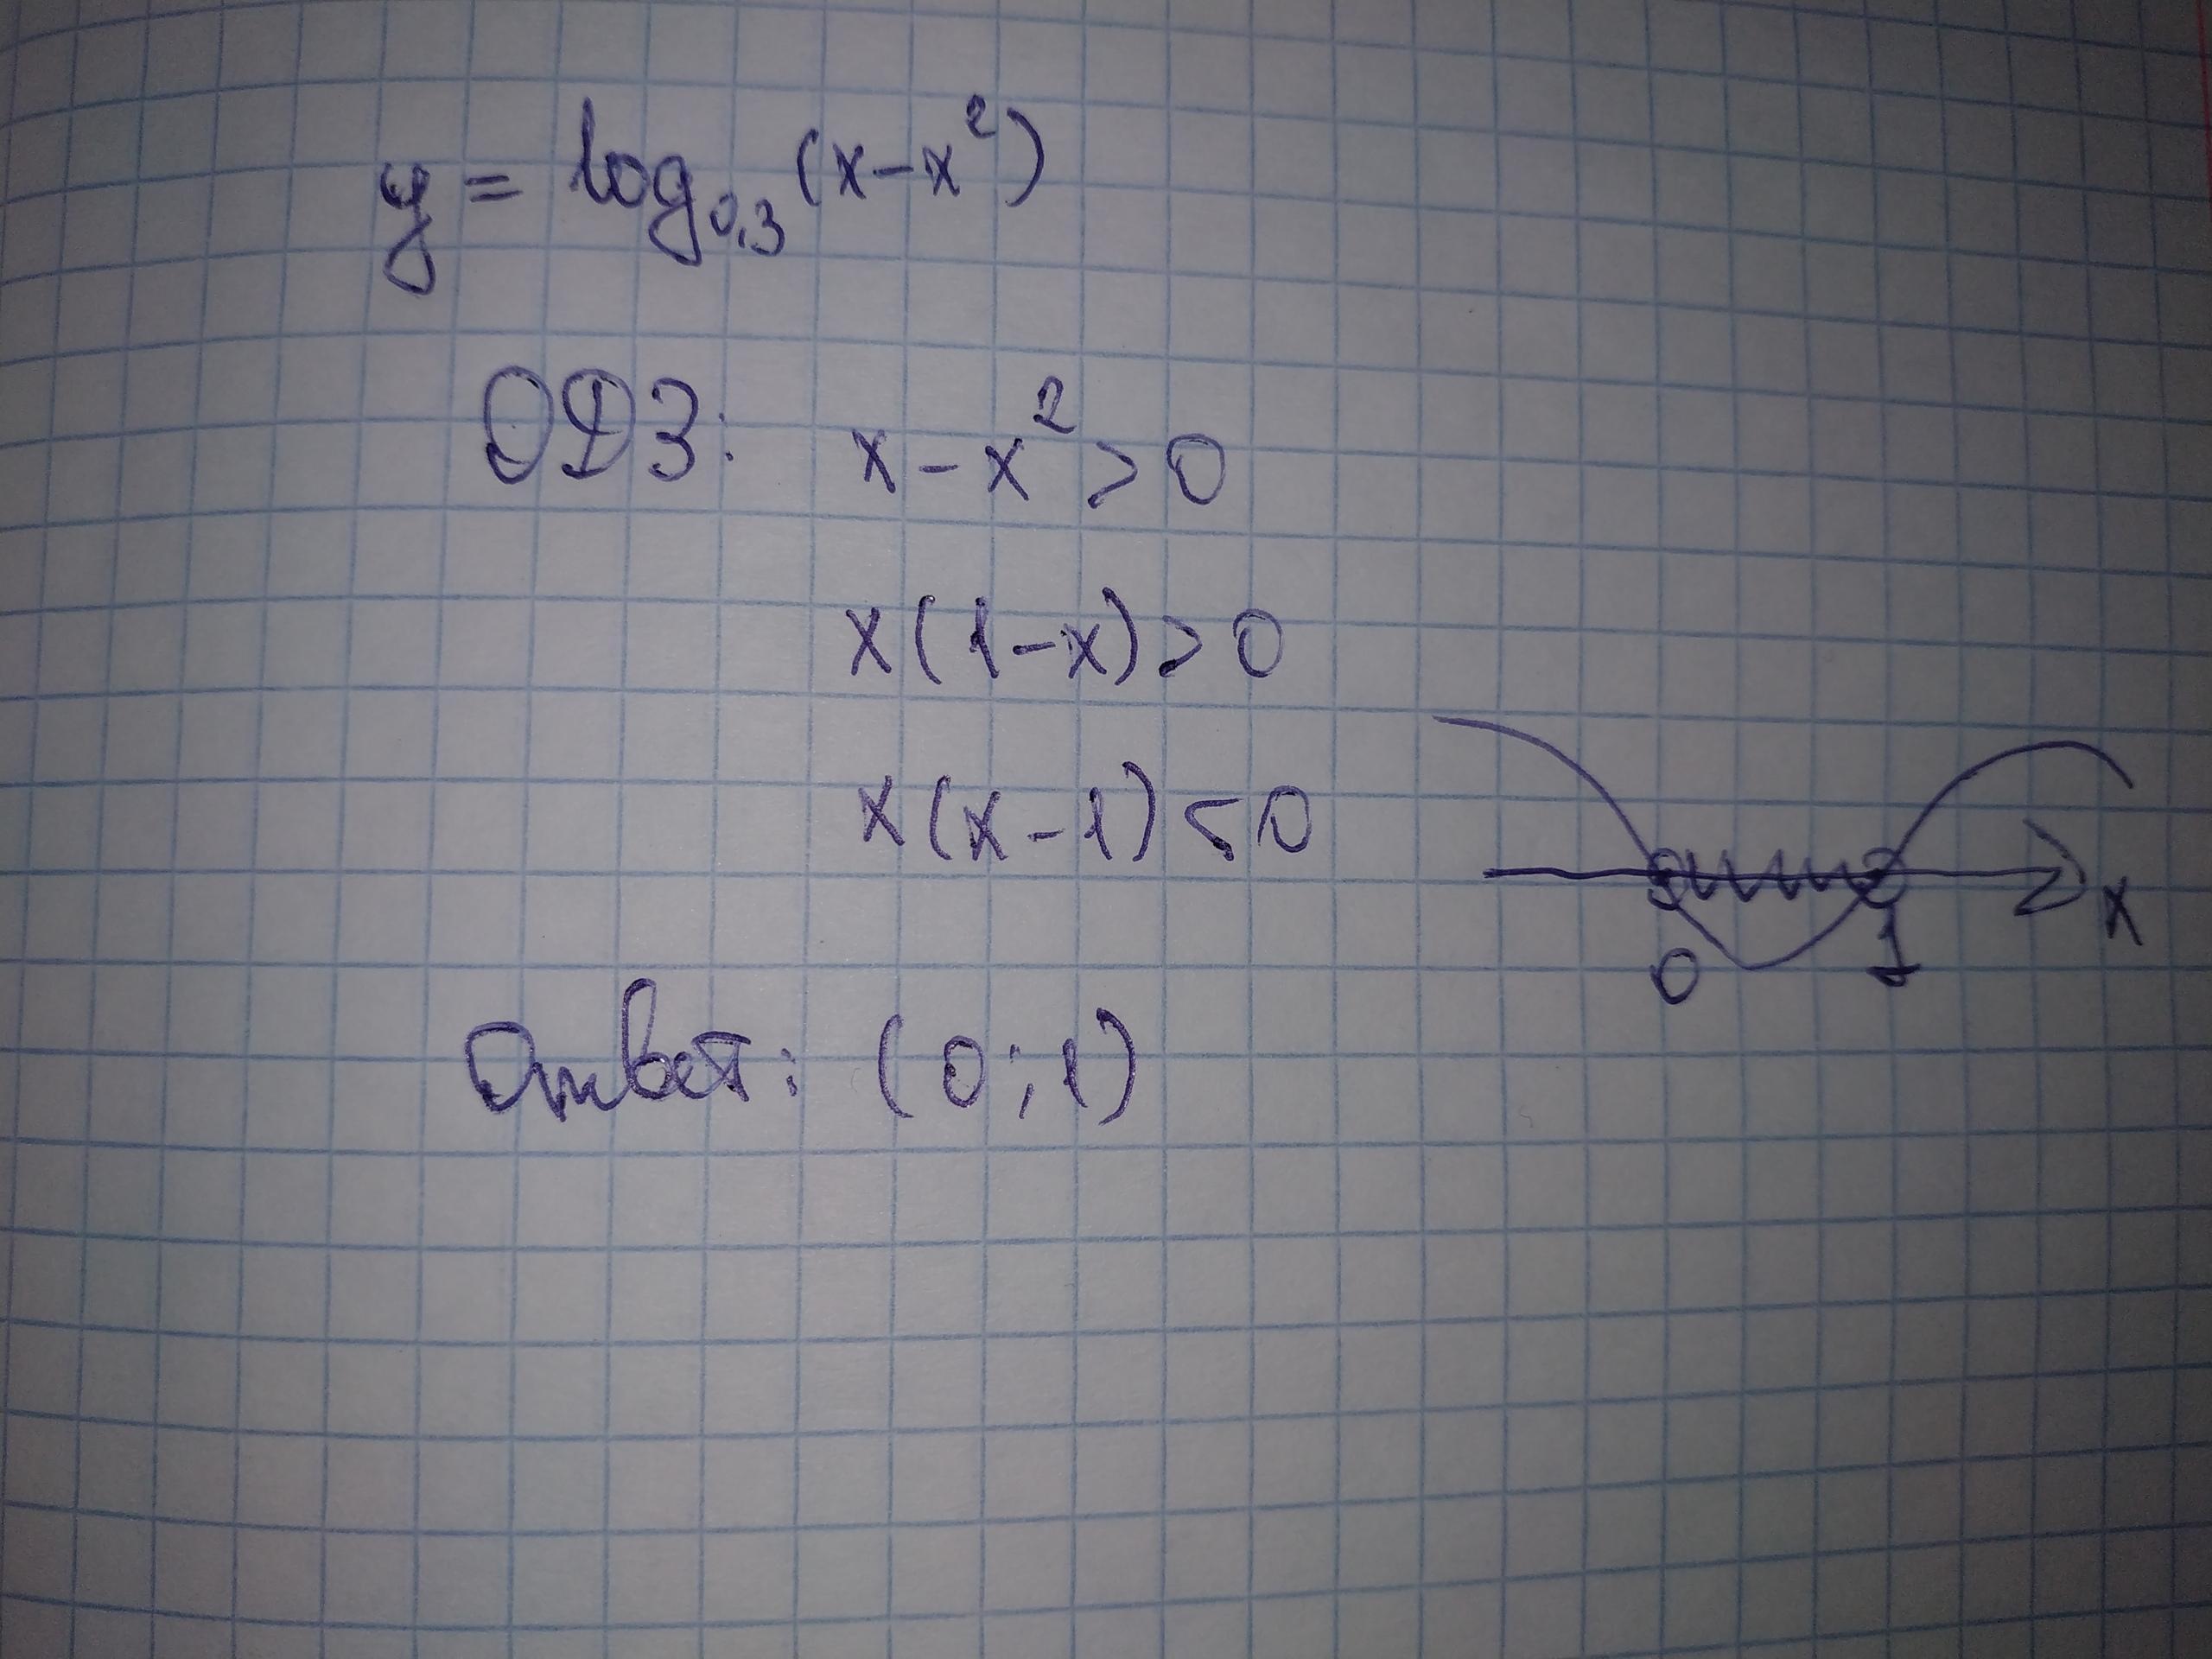 y = log₀,₃ (x-x²)
ОДЗ: x-x²>0
x(1-x)>0
x(x-1)<0
0 1 x
Ответ: (0;1)